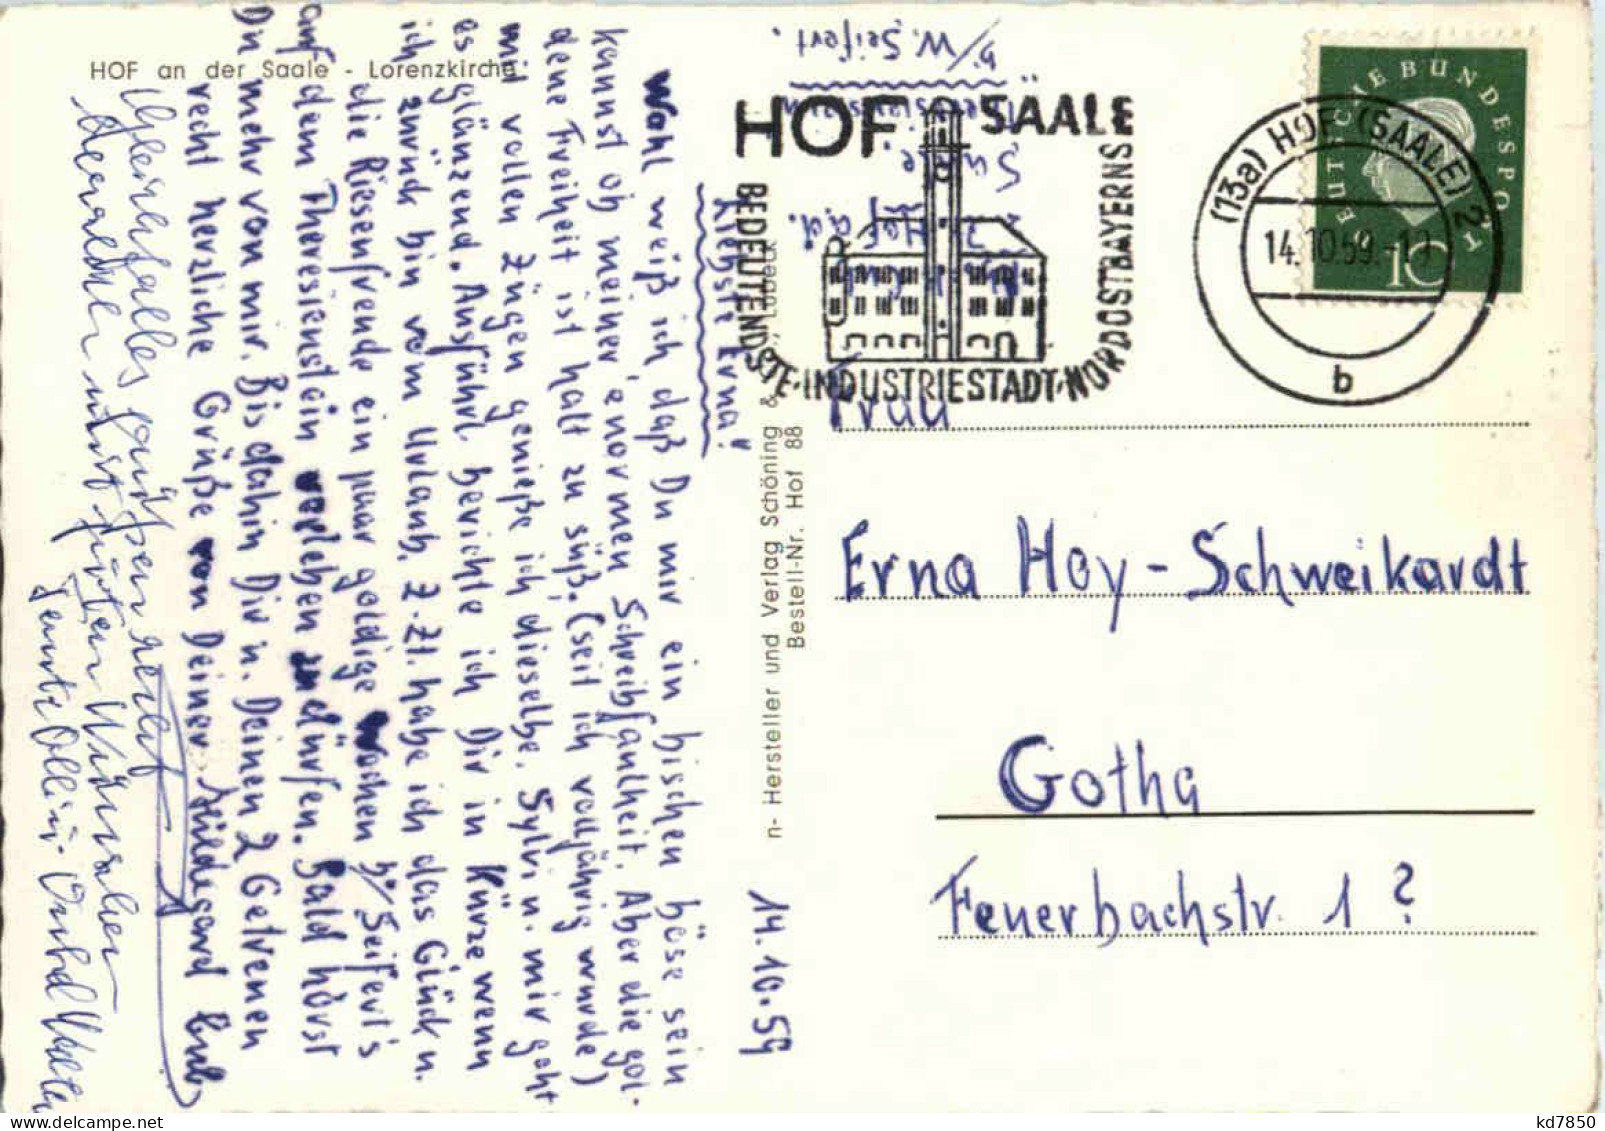 HOF an der Saale - Lorenzkirche
14.10.59
Liebste Erna!
Wohl weiß ich daß Du mir ein bischen böse sein
kannst ob meiner enormen Schreibfaulheit. Aber die gol-
dene Freiheit ist halt zu süß. (seit ich volljährig wurde)
mit vollen Zügen genieße ich dieselbe. Sylvi u. mir geht
es glänzend. Ausführl. berichte ich Dir in Kürze wenn
ich zurück bin vom Urlaub. Z. Zt. habe ich das Glück u.
die Riesenfreude ein paar goldige Wochen b/ Seifert's
auf dem Theresienstein verleben zu dürfen. Bald hörst
Du mehr von mir. Bis dahin Dir u. Deinen 2 Getreuen
recht herzliche Grüße von Deiner Hildegard
Gleichfalls
Tante
b/ W. Seifert.
Theresienstein
Saale
Hof a.d.
n- Hersteller und Verlag Schöning & , Lübeck
Bestell-Nr. Hof 88
HOF SAALE
BEDEUTENDSTE·INDUSTRIESTADT·NORDOSTBAYERNS
DEUTSCHE BUNDESPOST
10
(13a) HOF (SAALE) 2
14.10.59.-19
b
Frau
Erna Hoy-Schweikardt
Gotha
Feuerbachstr. 1 ?
kd7850